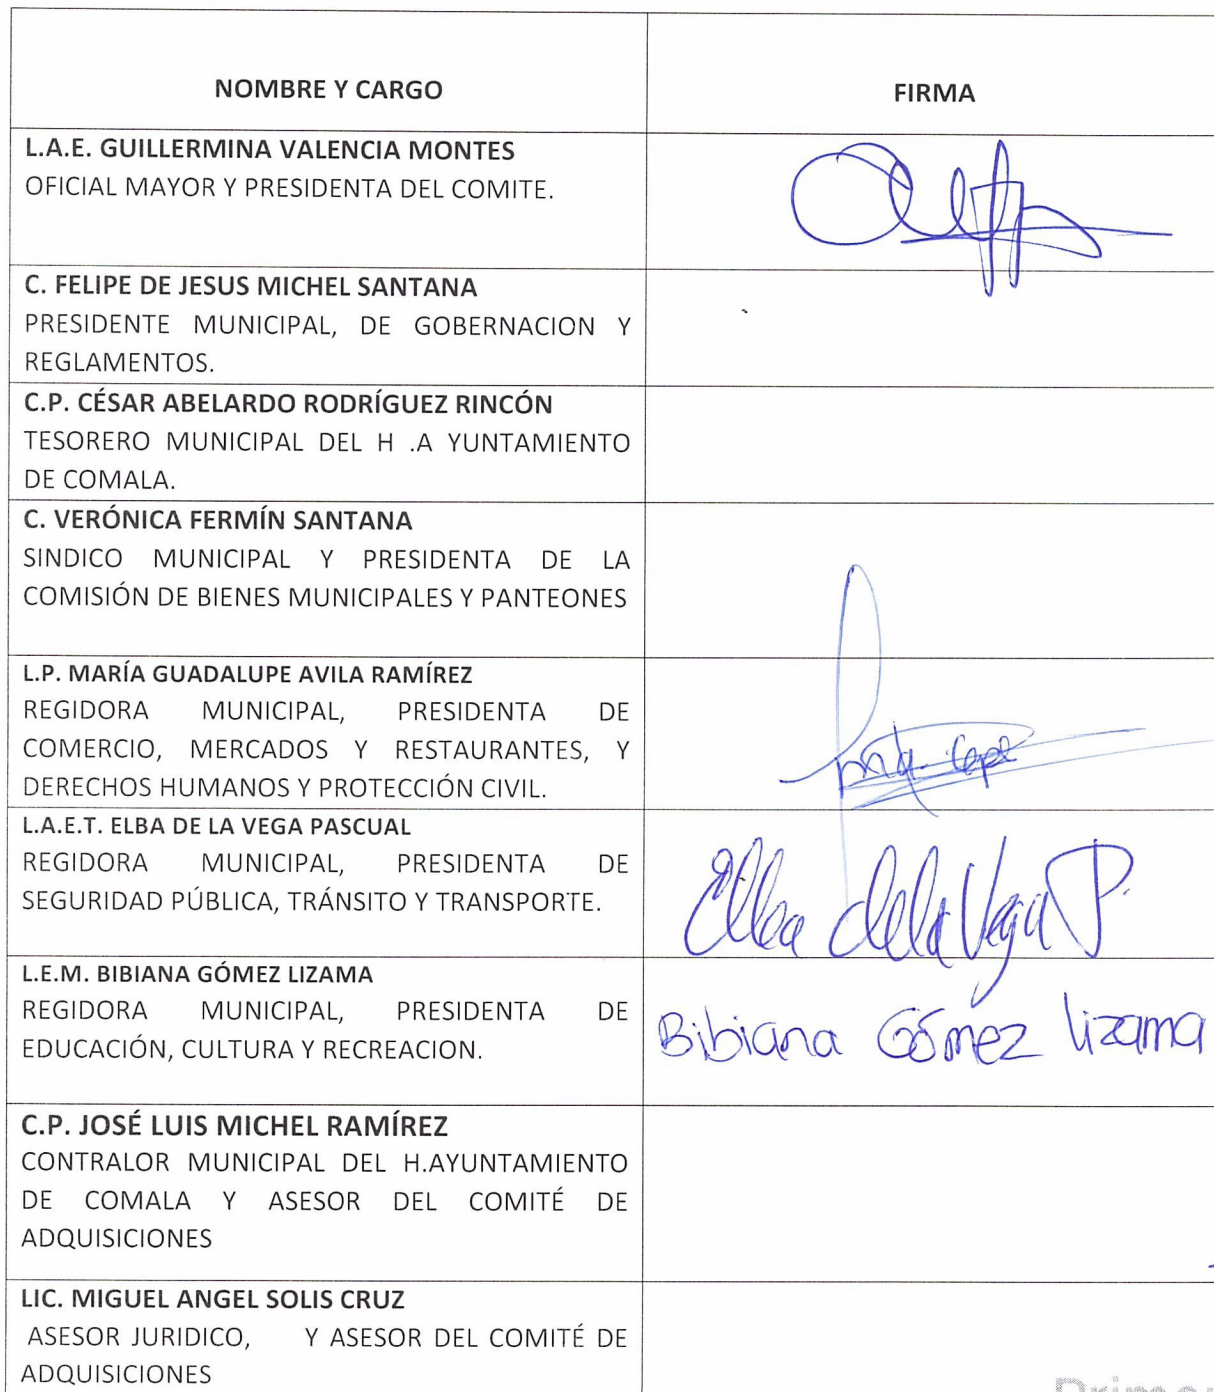 NOMBRE Y CARGO
FIRMA
L.A.E. GUILLERMINA VALENCIA MONTES
OFICIAL MAYOR Y PRESIDENTA DEL COMITE.
C. FELIPE DE JESUS MICHEL SANTANA
PRESIDENTE MUNICIPAL, DE GOBERNACION Y
REGLAMENTOS.
C.P. CÉSAR ABELARDO RODRÍGUEZ RINCÓN
TESORERO MUNICIPAL DEL H .A YUNTAMIENTO
DE COMALA.
C. VERÓNICA FERMÍN SANTANA
SINDICO MUNICIPAL Y PRESIDENTA DE LA
COMISIÓN DE BIENES MUNICIPALES Y PANTEONES
L.P. MARÍA GUADALUPE AVILA RAMÍREZ
REGIDORA MUNICIPAL, PRESIDENTA DE
COMERCIO, MERCADOS Y RESTAURANTES, Y
DERECHOS HUMANOS Y PROTECCIÓN CIVIL.
L.A.E.T. ELBA DE LA VEGA PASCUAL
REGIDORA MUNICIPAL, PRESIDENTA DE
SEGURIDAD PÚBLICA, TRÁNSITO Y TRANSPORTE.
Elba de la Vega P.
L.E.M. BIBIANA GÓMEZ LIZAMA
REGIDORA MUNICIPAL, PRESIDENTA DE
EDUCACIÓN, CULTURA Y RECREACION.
Bibiana Gómez Lizama
C.P. JOSÉ LUIS MICHEL RAMÍREZ
CONTRALOR MUNICIPAL DEL H.AYUNTAMIENTO
DE COMALA Y ASESOR DEL COMITÉ DE
ADQUISICIONES
LIC. MIGUEL ANGEL SOLIS CRUZ
ASESOR JURIDICO, Y ASESOR DEL COMITÉ DE
ADQUISICIONES